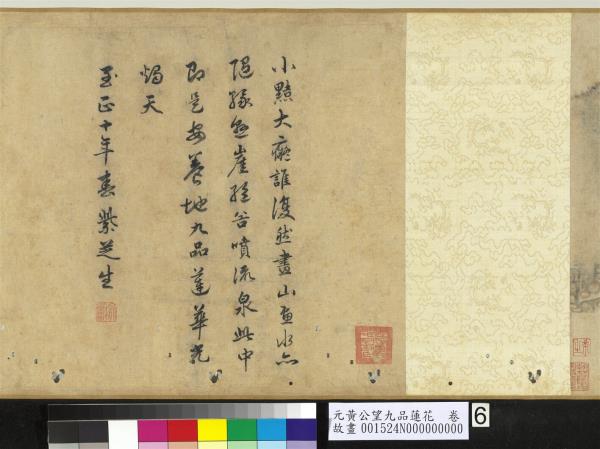 小黠大癡誰復然畫山畫水亦
隨緣懸崖絕谷噴流泉此中
即是安養地九品蓮華光
燭天
至正十年春紫芝生
元黃公望九品蓮花 卷
故畫 001524N000000000
6